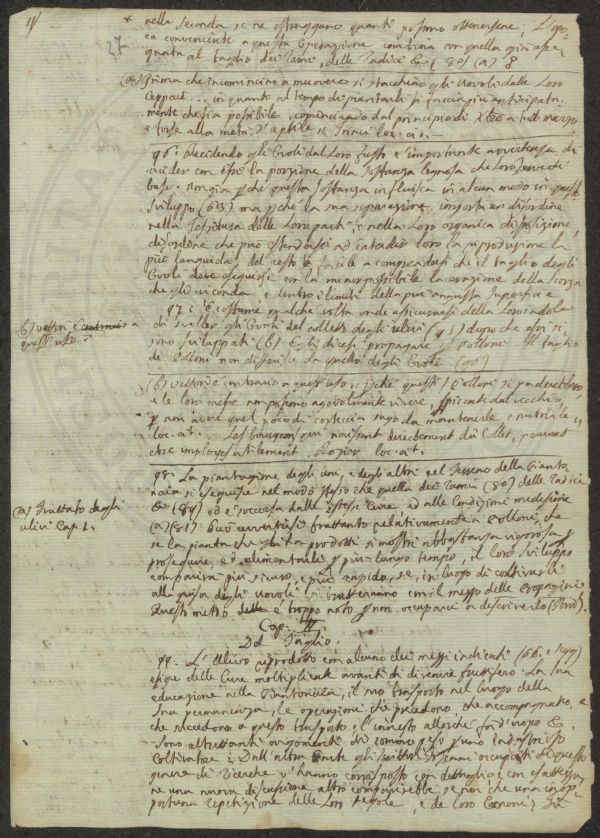 nella seconda se ne estraggano quanti possono ottenersene; L'epo-
ca conveniente a questa operazione combina con quella già asse-
gnata al taglio dei Rami, delle Radici &c (80) (a)
27
(a) Prima che incomincino a muovere si stacchino gli Uovoli dalle Loro
Ceppaie ... in quanto al tempo di piantarli si faccia più anticipata-
mente che sia possibile, cominciando dal principio di Xbre a tutto marzo,
e forse alla metà d'aprile loc. cit.
96. Recidendo gli Uvoli dal Loro è importante avvertenza di
uider con essi la porzione della sostanza legnosa che Loro serve di
base. Non già pche questa sostanza influisca in alcun modo in questo
sviluppo (65) ma pchè la sua separazione importa un disordine
nella tessitura delle Loro parti, e nella Loro organica disposizione,
disordine che può estendersi ad Loro la riproduzione la
più languida. Del resto è facile a comprendersi che il taglio degli
Uvoli deve eseguirsi con la minor possibile della scorza
che gli circonda e dentro i limiti della più angusta superficie
97. È costume qualche volta onde assicurarsi della Loro indole
di sveller gli Uvoli dal colletto degli ulivi (95) dopo che essi si
sono sviluppati (b) E gli dicesi propagare p Polloni. Il taglio
de Polloni non differisce da quello degli Uvoli (96)
(b) Vettori è contrario a
quest'uso
(b) Vettori è contrario a quest'uso: pchè questi Polloni si perderebbero,
e le loro messe non possono agevolmente vivere, spiccati dal vecchio,
p non avere quel poco di corteccia sugo da mantenerle e nutrirle
loc. cit. Les Bourgeons qui naissent directement du Collet, peuvent
etre employés utilement. Rozier Loc. cit.
98. La piantagione degli uni, e degli altri nel Terreno della Pianto-
naia si eseguisce nel modo stesso che quella dei Rami (80) delle Radici
&c (89) ed è soccorsa dalle istesse Cure ed alle Condizioni medesime
(a) (81) Devo avvertirsi frattanto relativamente a Polloni, che
se la pianta che gli ha prodotti si mostri abbastanza vigorosa p
proseguire, ed alimentarli p più lungo tempo, il loro sviluppo
comparirà più sicuro, e più rapido, se, in luogo di coltivarli
alla guisa degli uovoli si tratteranno con il mezzo delle Propagini
Questo metodo è troppo noto p non occuparci a descriverlo
(a) Trattato degli
ulivi Cap. I.
Cap.
Del Taglio.
99. L'Ulivo riprodotto con alcuno dei mezzi indicati (66. e segg)
esige delle Cure moltiplicate avanti di divenire fruttifero. La sua
educazione nella Piantonaia, il suo trasporto nel luogo della
sua permanenza, le operazioni che precedono, che accompagnano, e
che succedono a questo trasporto, l'innesto allorchè fa d'uopo &c
sono altrettanti argomenti di sommo peso p uno industrioso
Coltivatore. Dall'altra parte gli scrittori occupati di questo
genere di ricerche v'hanno corrisposto con dettaglio e con esattezza
ne una nuova discussione altro comparirebbe se non che una inop-
portuna repetizione delle Loro regole, e de loro Canoni